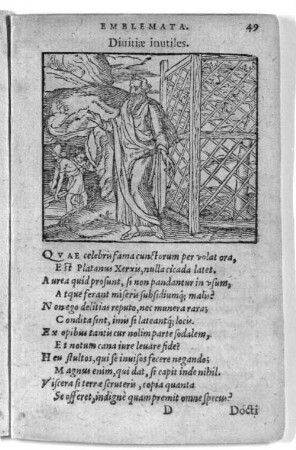 EMBLEMATA. 49
Diuitiæ inutiles.
QVAE celebris fama cunctorum per volat ora,
Est Platanus Xerxis, nulla cicada latet.
Aurea quid prosunt, si non pandantur in vsum,
Atque ferant miseris subsidiumq; malis?
Non ego delitias reputo, nec munera rara;
Condita sint, imò si lateantq; locis.
Ex opibus tantis cur nolim parte sodalem,
Et notum cana iure leuare fide?
Heu stultos, qui se inuisos fecere negando;
Magnus enim, qui dat, si capit inde nihil.
Viscera si terræ scruteris, copia quanta
Se offeret, indignè quam premit omne specus?
D Docti